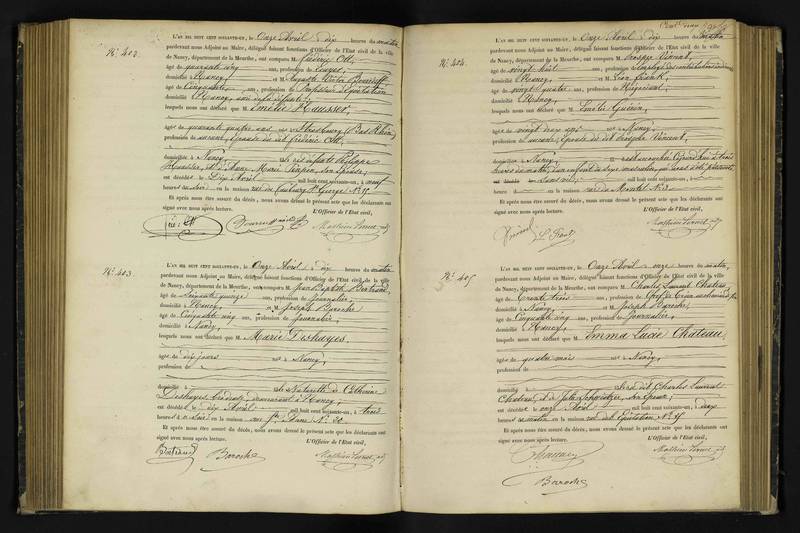 N.° 402.
L'AN MIL HUIT CENT SOIXANTE-UN, le Onze Avril dix heures du matin
pardevant nous Adjoint au Maire, délégué faisant fonctions d'Officier de l'Etat civil de la ville
de Nancy, département de la Meurthe, ont comparu M. Frédéric Ott,
âgé de quarante cinq ans, profession de
domicilié à Nancy, et M. Auguste Victor
âgé de Cinquante ans, profession de Professeur d'Equitation
domicilié à Nancy, ami de la défunte;
lesquels nous ont déclaré que M. Emélie Hausser,
âgée de quarante quatre ans née à Strasbourg (Bas Rhin)
profession de épouse du dit Frédéric Ott,
domiciliée à Nancy, Philippe
Hausser, et d'Anne Marie son épouse;
est décédée le Dix Avril mil huit cent soixante-un, à neuf
heures du soir en la maison rue du faubourg St. George N.°
Et après nous être assuré du décès, nous avons dressé le présent acte que les déclarants ont
signé avec nous après lecture. L'Officier de l'Etat civil,
N.° 403.
L'AN MIL HUIT CENT SOIXANTE-UN, le Onze Avril dix heures du matin
pardevant nous Adjoint au Maire, délégué faisant fonctions d'Officier de l'Etat civil de la ville
de Nancy, département de la Meurthe, ont comparu M. Jean Baptiste Bertrand,
âgé de soixante quinze ans, profession de Journalier,
domicilié à Nancy, et M. Joseph Baroche
âgé de Cinquante cinq ans, profession de Journalier,
domicilié à Nancy,
lesquels nous ont déclaré que M. Marie Deshayes,
âgée de dix jours née à Nancy,
profession de
domiciliée à fille Naturelle de Catherine
Deshayes demeurant à Nancy;
est décédée le dix Avril mil huit cent soixante-un, à trois
heures du soir en la maison rue N.° 30
Et après nous être assuré du décès, nous avons dressé le présent acte que les déclarants ont
signé avec nous après lecture. L'Officier de l'Etat civil,
Bertrand Baroche
N.° 404.
L'AN MIL HUIT CENT SOIXANTE-UN, le Onze Avril dix heures du matin
pardevant nous Adjoint au Maire, délégué faisant fonctions d'Officier de l'Etat civil de la ville
de Nancy, département de la Meurthe, ont comparu M. Prosper Vincent,
âgé de vingt huit ans, profession d'Employé des contributions
domicilié à Nancy, et M. Léon Frank
âgé de vingt quatre ans, profession de Négociant,
domicilié à Nancy,
lesquels nous ont déclaré que M. Emélie Guérin,
âgée de vingt deux ans née à Nancy,
profession de épouse du dit Prosper Vincent,
domiciliée à Nancy, est accouchée Aujourd'hui à trois
heures du matin, d'un enfant du sexe masculin, qui nous a été présenté
est décédé le sans vie, mil huit cent soixante-un, à
heures d en la maison rue N.° 3
Et après nous être assuré du décès, nous avons dressé le présent acte que les déclarants ont
signé avec nous après lecture. L'Officier de l'Etat civil,
N.° 405
L'AN MIL HUIT CENT SOIXANTE-UN, le Onze Avril onze heures du matin
pardevant nous Adjoint au Maire, délégué faisant fonctions d'Officier de l'Etat civil de la ville
de Nancy, département de la Meurthe, ont comparu M. Charles Laurent Chateau
âgé de Trente trois ans, profession de Chef de Train
domicilié à Nancy, et M. Joseph Baroche,
âgé de Cinquante cinq ans, profession de Journalier,
domicilié à Nancy,
lesquels nous ont déclaré que M. Emma Lucie Chateau
âgée de quatre mois née à Nancy,
profession de
domiciliée à fille du dit Charles Laurent
Chateau, et de Julie son épouse;
est décédée le onze Avril mil huit cent soixante-un, à deux
heures du matin en la maison rue N.°
Et après nous être assuré du décès, nous avons dressé le présent acte que les déclarants ont
signé avec nous après lecture. L'Officier de l'Etat civil,
Baroche